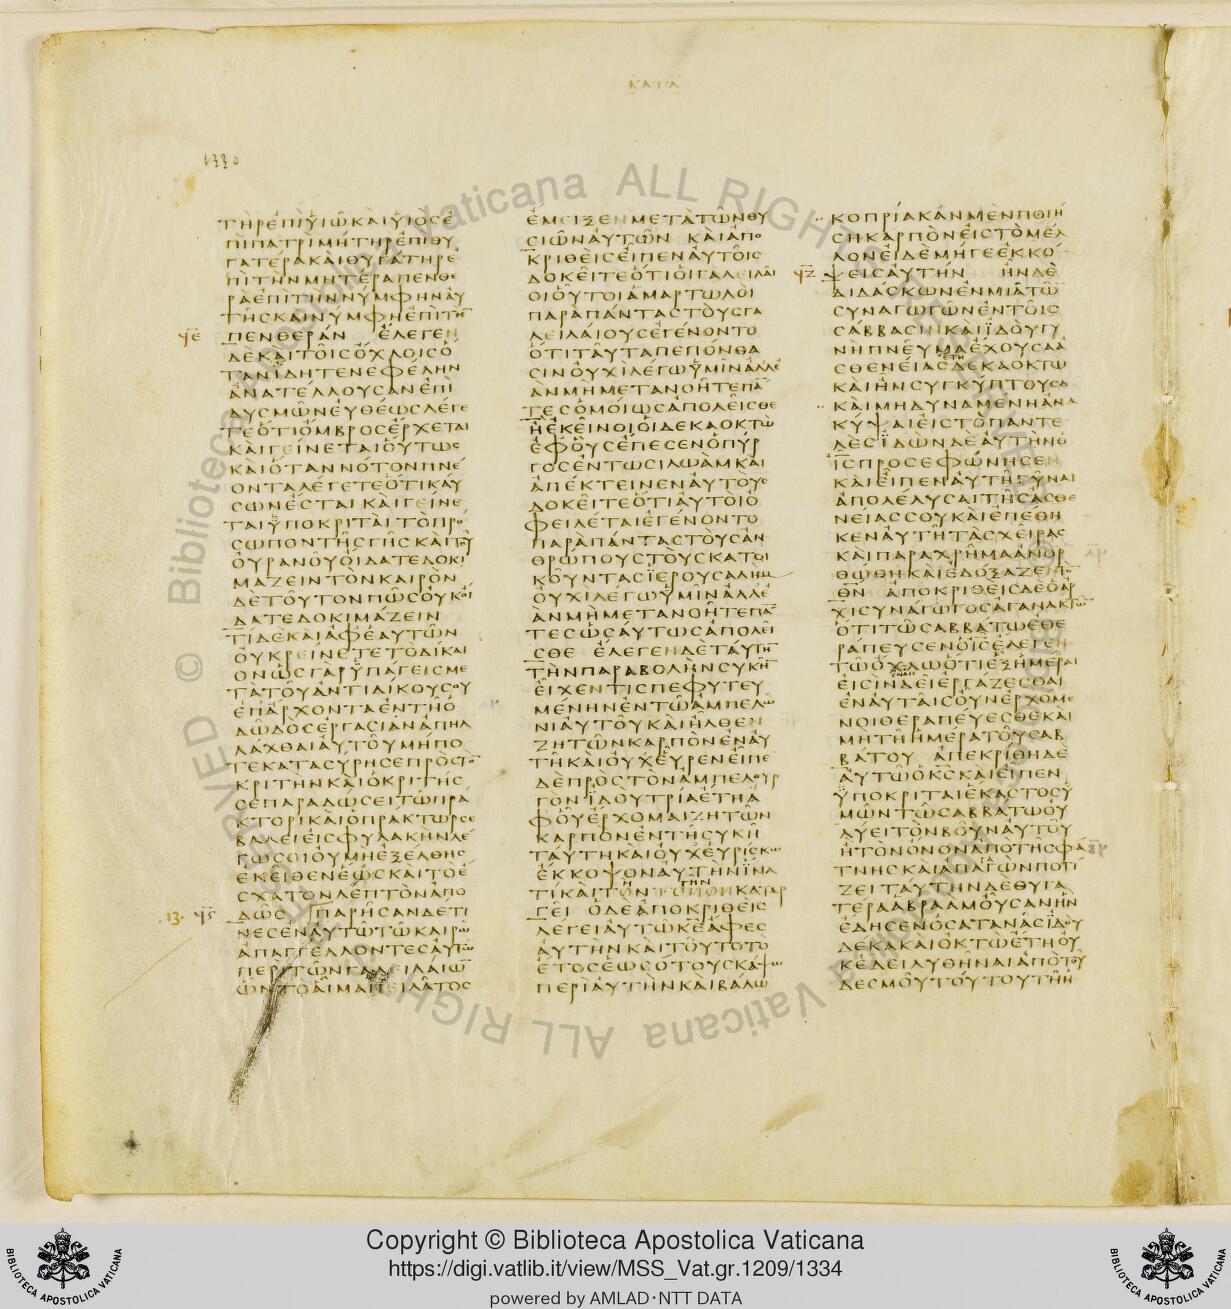 ΚΑΤΑ
1330
ΤΗΡΕΠΙΥΙΩΚΑΙΥΙΟΣΕ
ΠΙΠΑΤΡΙΜΗΤΗΡΕΠΙΘΥ
ΓΑΤΕΡΑΚΑΙΘΥΓΑΤΗΡΕ
ΠΙΤΗΝΜΗΤΕΡΑΠΕΝΘΕ
ΡΑΕΠΙΤΗΝΝΥΜΦΗΝΑΥ
ΤΗΣΚΑΙΝΥΜΦΗΕΠΙΤΗ
ΠΕΝΘΕΡΑΝ ΕΛΕΓΕΝ
ΔΕΚΑΙΤΟΙΣΟΧΛΟΙΣΟ
ΤΑΝΙΔΗΤΕΝΕΦΕΛΗΝ
ΑΝΑΤΕΛΛΟΥΣΑΝΕΠΙ
ΔΥΣΜΩΝΕΥΘΕΩΣΛΕΓΕ
ΤΕΟΤΙΟΜΒΡΟΣΕΡΧΕΤΑΙ
ΚΑΙΓΕΙΝΕΤΑΙΟΥΤΩΣ
ΚΑΙΟΤΑΝΝΟΤΟΝΠΝΕ
ΟΝΤΑΛΕΓΕΤΕΟΤΙΚΑΥ
ΣΩΝΕΣΤΑΙΚΑΙΓΕΙΝΕ
ΤΑΙΥΠΟΚΡΙΤΑΙΤΟΠΡΟ
ΣΩΠΟΝΤΗΣΓΗΣΚΑΙΤΟΥ
ΟΥΡΑΝΟΥΟΙΔΑΤΕΔΟΚΙ
ΜΑΖΕΙΝΤΟΝΚΑΙΡΟΝ
ΔΕΤΟΥΤΟΝΠΩΣΟΥΚΟΙ
ΔΑΤΕΔΟΚΙΜΑΖΕΙΝ
ΤΙΔΕΚΑΙΑΦΕΑΥΤΩΝ
ΟΥΚΡΕΙΝΕΤΕΤΟΔΙΚΑΙ
ΟΝΩΣΓΑΡΥΠΑΓΕΙΣΜΕ
ΤΑΤΟΥΑΝΤΙΔΙΚΟΥΣΟΥ
ΕΠΑΡΧΟΝΤΑΕΝΤΗΟ
ΔΩΔΟΣΕΡΓΑΣΙΑΝΑΠΗΛ
ΛΑΧΘΑΙΑΥΤΟΥΜΗΠΟ
ΤΕΚΑΤΑΣΥΡΗΣΕΠΡΟΣΤΟ
ΚΡΙΤΗΝΚΑΙΟΚΡΙΤΗΣ
ΣΕΠΑΡΑΔΩΣΕΙΤΩΠΡΑ
ΚΤΟΡΙΚΑΙΟΠΡΑΚΤΩΡΣΕ
ΒΑΛΕΙΕΙΣΦΥΛΑΚΗΝΛΕ
ΓΩΣΟΙΟΥΜΗΕΞΕΛΘΗΣ
ΕΚΕΙΘΕΝΕΩΣΚΑΙΤΟΕ
ΣΧΑΤΟΝΛΕΠΤΟΝΑΠΟ
ΔΩΣ ΠΑΡΗΣΑΝΔΕΤΙ
ΝΕΣΕΝΑΥΤΩΤΩΚΑΙΡΩ
ΑΠΑΓΓΕΛΛΟΝΤΕΣΑΥΤΩ
ΠΕΡΙΤΩΝΓΑΛΕΙΛΑΙΩ
ΩΝΤΟΑΙΜΑΠΕΙΛΑΤΟΣ
ΕΜΕΙΞΕΝΜΕΤΑΤΩΝΘΥ
ΣΙΩΝΑΥΤΩΝ ΚΑΙΑΠΟ
ΚΡΙΘΕΙΣΕΙΠΕΝΑΥΤΟΙΣ
ΔΟΚΕΙΤΕΟΤΙΟΙΓΑΛΕΙΛΑΙ
ΟΙΟΥΤΟΙΑΜΑΡΤΩΛΟΙ
ΠΑΡΑΠΑΝΤΑΣΤΟΥΣΓΑ
ΛΕΙΛΑΙΟΥΣΕΓΕΝΟΝΤΟ
ΟΤΙΤΑΥΤΑΠΕΠΟΝΘΑ
ΣΙΝΟΥΧΙΛΕΓΩΥΜΙΝΑΛΛΕ
ΑΝΜΗΜΕΤΑΝΟΗΤΕΠΑ
ΤΕΣΟΜΟΙΩΣΑΠΟΛΕΙΣΘΕ
ΗΕΚΕΙΝΟΙΟΙΔΕΚΑΟΚΤΩ
ΕΦΟΥΣΕΠΕΣΕΝΟΠΥΡ
ΓΟΣΕΝΤΩΣΙΛΩΑΜΚΑΙ
ΑΠΕΚΤΕΙΝΕΝΑΥΤΟΥΣ
ΔΟΚΕΙΤΕΟΤΙΑΥΤΟΙΟ
ΦΕΙΛΕΤΑΙΕΓΕΝΟΝΤΟ
ΠΑΡΑΠΑΝΤΑΣΤΟΥΣΑΝ
ΘΡΩΠΟΥΣΤΟΥΣΚΑΤΟΙ
ΚΟΥΝΤΑΣΙΕΡΟΥΣΑΛΗΜ
ΟΥΧΙΛΕΓΩΥΜΙΝΑΛΛΕ
ΑΝΜΗΜΕΤΑΝΟΗΤΕΠΑ
ΤΕΣΩΣΑΥΤΩΣΑΠΟΛΕΙ
ΣΘΕ ΕΛΕΓΕΝΔΕΤΑΥΤΗ
ΤΗΝΠΑΡΑΒΟΛΗΝΣΥΚΗ
ΕΙΧΕΝΤΙΣΠΕΦΥΤΕΥ
ΜΕΝΗΝΕΝΤΩΑΜΠΕΛΩ
ΝΙΑΥΤΟΥΚΑΙΗΛΘΕΝ
ΖΗΤΩΝΚΑΡΠΟΝΕΝΑΥ
ΤΗΚΑΙΟΥΧΕΥΡΕΝΕΙΠΕ
ΔΕΠΡΟΣΤΟΝΑΜΠΕΛΟΥΡ
ΓΟΝΙΔΟΥΤΡΙΑΕΤΗΑ
ΦΟΥΕΡΧΟΜΑΙΖΗΤΩΝ
ΚΑΡΠΟΝΕΝΤΗΣΥΚΗ
ΤΑΥΤΗΚΑΙΟΥΧΕΥΡΙΣΚΩ
ΕΚΚΟΨΟΝΑΥΤΗΝΙΝΑ
ΤΙΚΑΙΤΟΝΤΟΠΟΝΚΑΤΑΡ
ΓΕΙ ΟΔΕΑΠΟΚΡΙΘΕΙΣ
ΛΕΓΕΙΑΥΤΩΚΕΑΦΕΣ
ΑΥΤΗΝΚΑΙΤΟΥΤΟΤΟ
ΕΤΟΣΕΩΣΟΤΟΥΣΚΑΨΩ
ΠΕΡΙΑΥΤΗΝΚΑΙΒΑΛΩ
ΚΟΠΡΙΑΚΑΝΜΕΝΠΟΙΗ
ΣΗΚΑΡΠΟΝΕΙΣΤΟΜΕΛ
ΛΟΝΕΙΔΕΜΗΓΕΕΚΚΟ
ΨΕΙΣΑΥΤΗΝ ΗΝΔΕ
ΔΙΔΑΣΚΩΝΕΝΜΙΑΤΩ
ΣΥΝΑΓΩΓΩΝΕΝΤΟΙΣ
ΣΑΒΒΑΣΙΝΚΑΙΙΔΟΥΓΥ
ΝΗΠΝΕΥΜΑΕΧΟΥΣΑΑ
ΣΘΕΝΕΙΑΣΕΤΗΔΕΚΑΟΚΤΩ
ΚΑΙΗΝΣΥΓΚΥΠΤΟΥΣΑ
ΚΑΙΜΗΔΥΝΑΜΕΝΗΑΝΑ
ΚΥΨΑΙΕΙΣΤΟΠΑΝΤΕ
ΛΕΣΙΔΩΝΔΕΑΥΤΗΝΟ
ΙΣΠΡΟΣΕΦΩΝΗΣΕΝ
ΚΑΙΕΙΠΕΝΑΥΤΗΓΥΝΑΙ
ΑΠΟΛΕΛΥΣΑΙΤΗΣΑΣΘΕ
ΝΕΙΑΣΣΟΥΚΑΙΕΠΕΘΗ
ΚΕΝΑΥΤΗΤΑΣΧΕΙΡΑΣ
ΚΑΙΠΑΡΑΧΡΗΜΑΑΝΟΡ
ΘΩΘΗΚΑΙΕΔΟΞΑΖΕΝΤΟ
ΘΝ ΑΠΟΚΡΙΘΕΙΣΔΕΟΑΡ
ΧΙΣΥΝΑΓΩΓΟΣΑΓΑΝΑΚΤΩ
ΟΤΙΤΩΣΑΒΒΑΤΩΕΘΕ
ΡΑΠΕΥΣΕΝΟΙΣΕΛΕΓΕΝ
ΤΩΟΧΛΩΟΤΙΕΞΗΜΕΡΑΙ
ΕΙΣΙΝΕΝΑΙΣΔΕΙΕΡΓΑΖΕΣΘΑΙ
ΕΝΑΥΤΑΙΣΟΥΝΕΡΧΟΜΕ
ΝΟΙΘΕΡΑΠΕΥΕΣΘΕΚΑΙ
ΜΗΤΗΗΜΕΡΑΤΟΥΣΑΒ
ΒΑΤΟΥ ΑΠΕΚΡΙΘΗΔΕ
ΑΥΤΩΟΚΣΚΑΙΕΙΠΕΝ
ΥΠΟΚΡΙΤΑΙΕΚΑΣΤΟΣΥ
ΜΩΝΤΩΣΑΒΒΑΤΩΟΥ
ΛΥΕΙΤΟΝΒΟΥΝΑΥΤΟΥ
ΗΤΟΝΟΝΟΝΑΠΟΤΗΣΦΑ
ΤΝΗΣΚΑΙΑΠΑΓΑΓΩΝΠΟΤΙ
ΖΕΙΤΑΥΤΗΝΔΕΘΥΓΑ
ΤΕΡΑΑΒΡΑΑΜΟΥΣΑΝΗΝ
ΕΔΗΣΕΝΟΣΑΤΑΝΑΣΙΔΟΥ
ΔΕΚΑΚΑΙΟΚΤΩΕΤΗΟΥ
ΚΕΔΕΙΛΥΘΗΝΑΙΑΠΟΤΟΥ
ΔΕΣΜΟΥΤΟΥΤΟΥΤΗΗ
Copyright © Biblioteca Apostolica Vaticana
https://digi.vatlib.it/view/MSS_Vat.gr.1209/1334
powered by AMLAD·NTT DATA